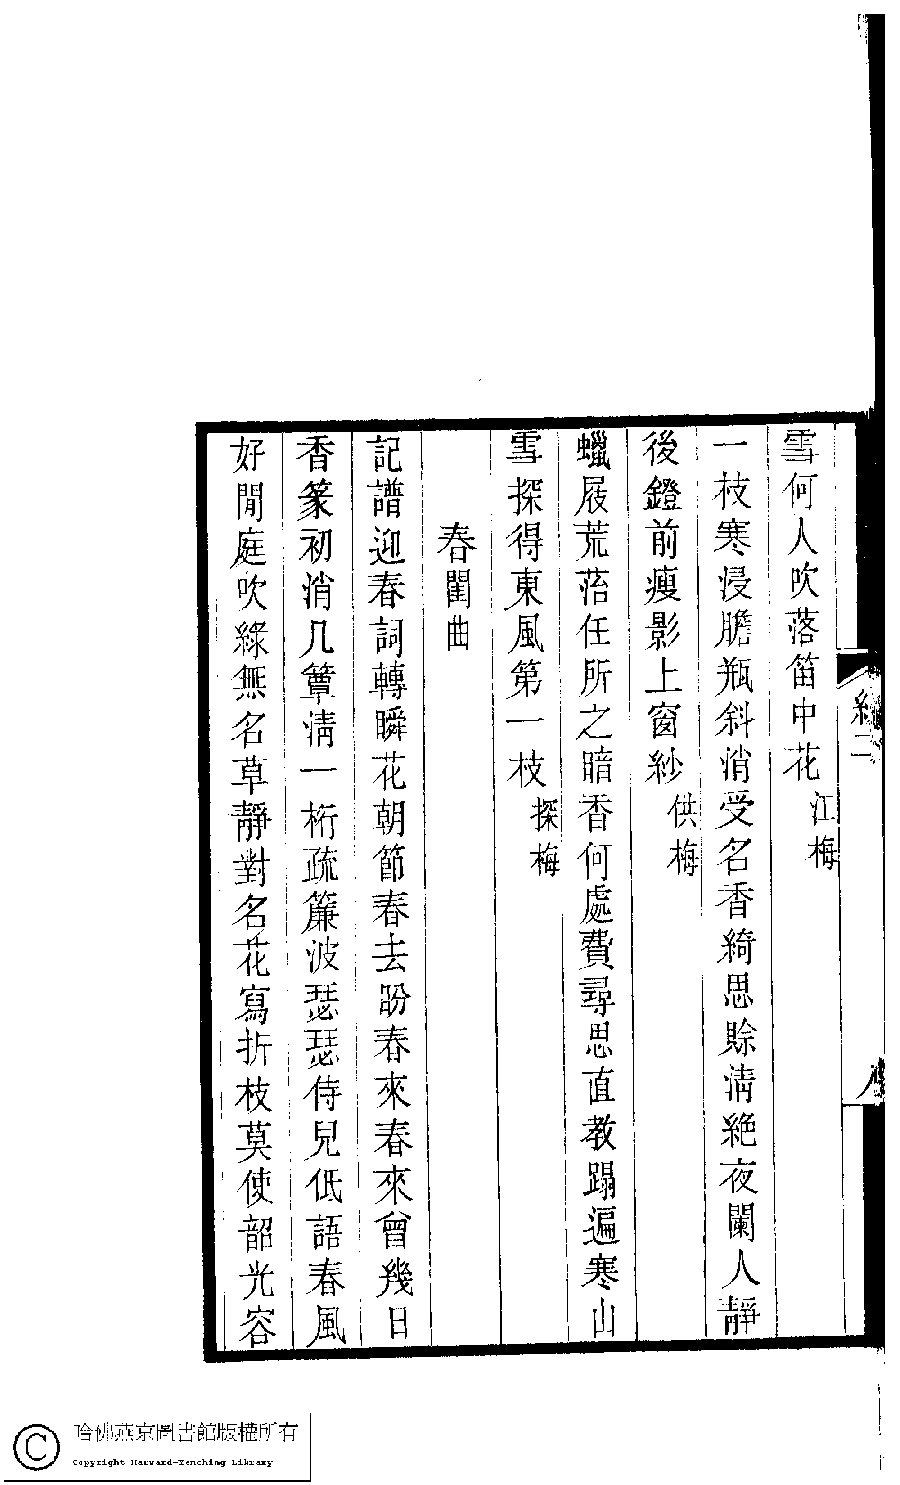 雪何人吹落笛中花江梅
一枝寒浸膽瓶斜消受名香綺思賒清絶夜闌人靜
後鐙前瘦影上窗紗供梅
蠟屐荒菭任所之暗香何處費尋思直教蹋遍寒山
雪探得東風第一枝探梅
春閨曲
記譜迎春詞轉瞬花朝節春去盼春來春來曾幾日
香篆初消几簟清一桁疏簾波瑟瑟侍兒低語春風
好閒庭吹綠無名草靜對名花寫折枝莫使韶光容
哈佛燕京圖書館版權所有
Copyright Harvard-Yenching Library